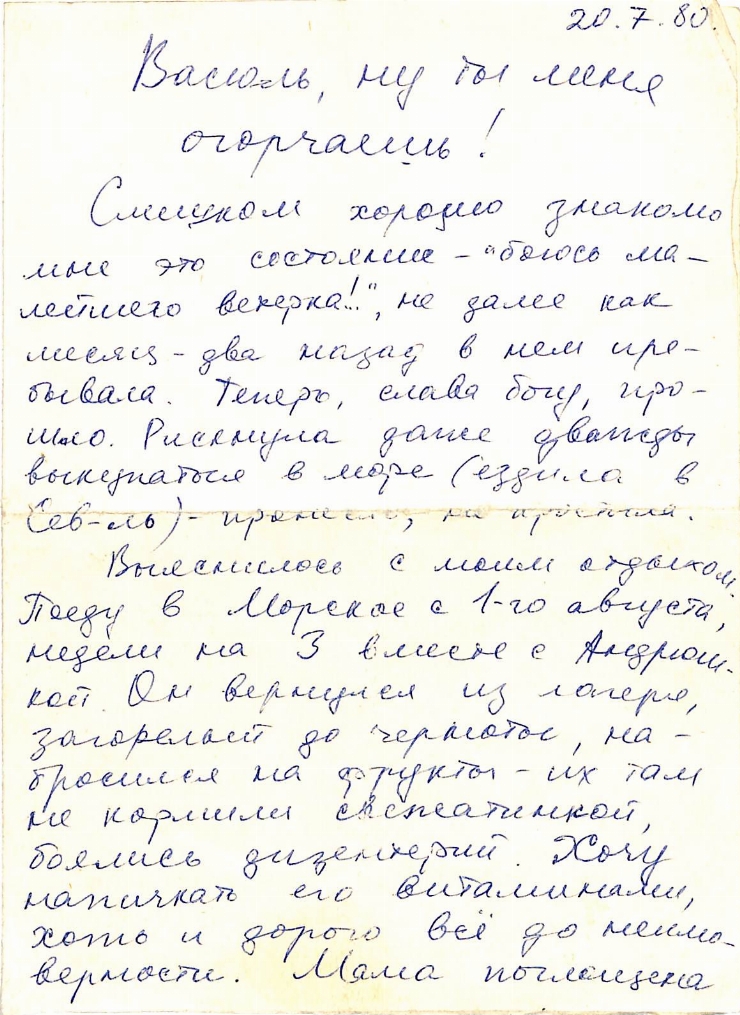 20.7.80.
Васюль, ну ты меня
огорчаешь!
Слишком хорошо знакомо
мне это состояние - "боюсь ма-
лейшего ветерка!..", не далее как
месяц-два назад в нем пре-
бывала. Теперь, слава богу, про-
шло. Рискнула даже дважды
выкупаться в море (ездила в
Сев-ль) - пронесло, не простыла.
Выяснилось с моим отдыхом.
Поеду в Морское с 1-го августа,
недели на 3 вместе с Андрюш-
кой. Он вернулся из лагеря,
загорелый до черноты, на-
бросился на фрукты - их там
не кормили свежатинкой,
боялись дизентерий. Хочу
напичкать его витаминами,
хоть и дорого всё до неимо-
верности. Мама поглощена